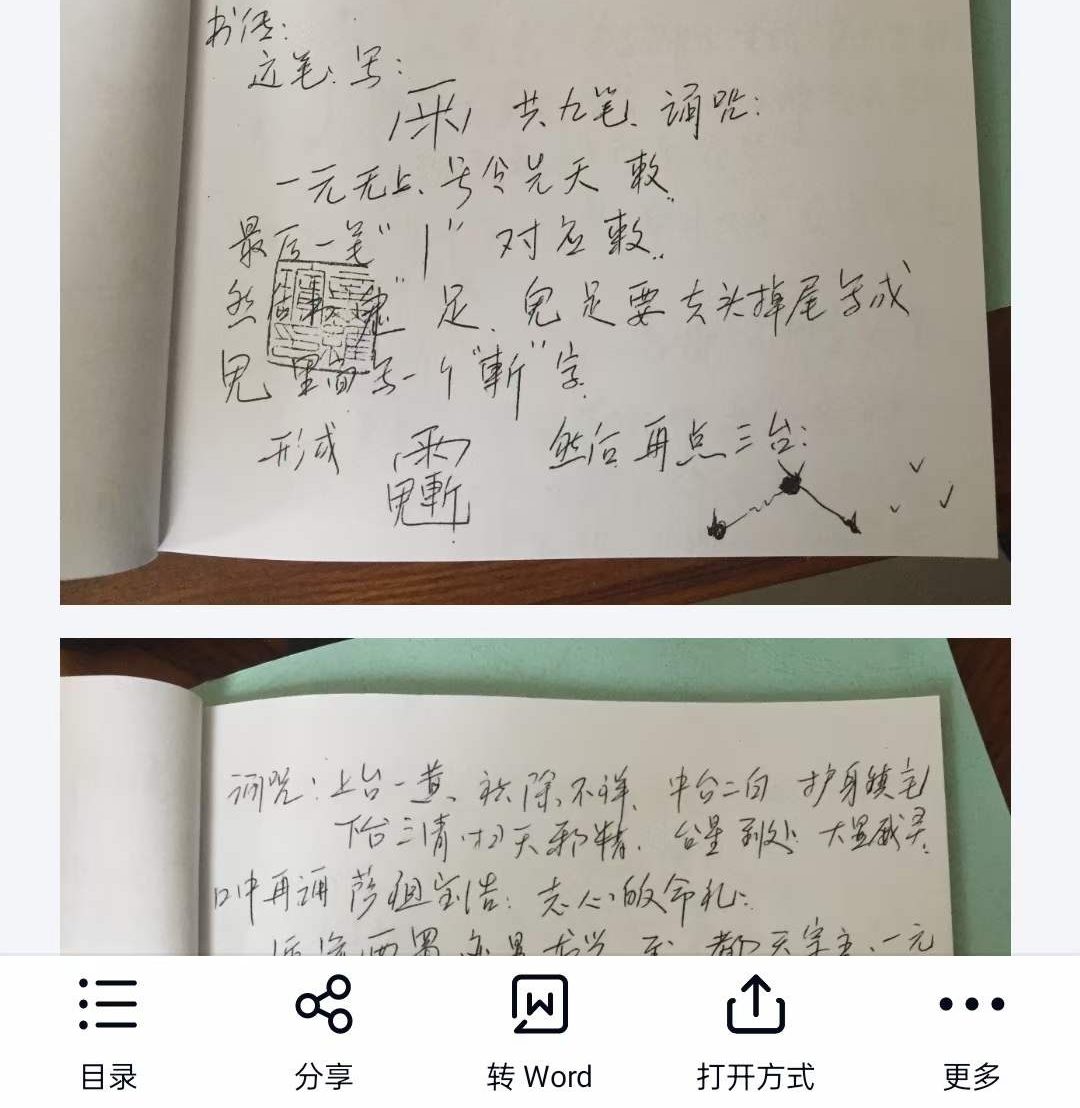 书法:
运笔、写:
共九笔、诵咒:
一元无上、号令先天 敕
最后一笔"丨" 对应敕
然 足、鬼足要去头掉尾 写成
里面写一个"斬"字
形成 然后再点三台:
诵咒:上台一黄、祛除不祥、中台二白 护身镇宅
下台三清、扫灭邪精. 台星到处 大显威灵.
口中再诵 萨祖宝诰: 志心皈命礼:
西 都天宗主、一元
目录 分享 转 Word 打开方式 更多